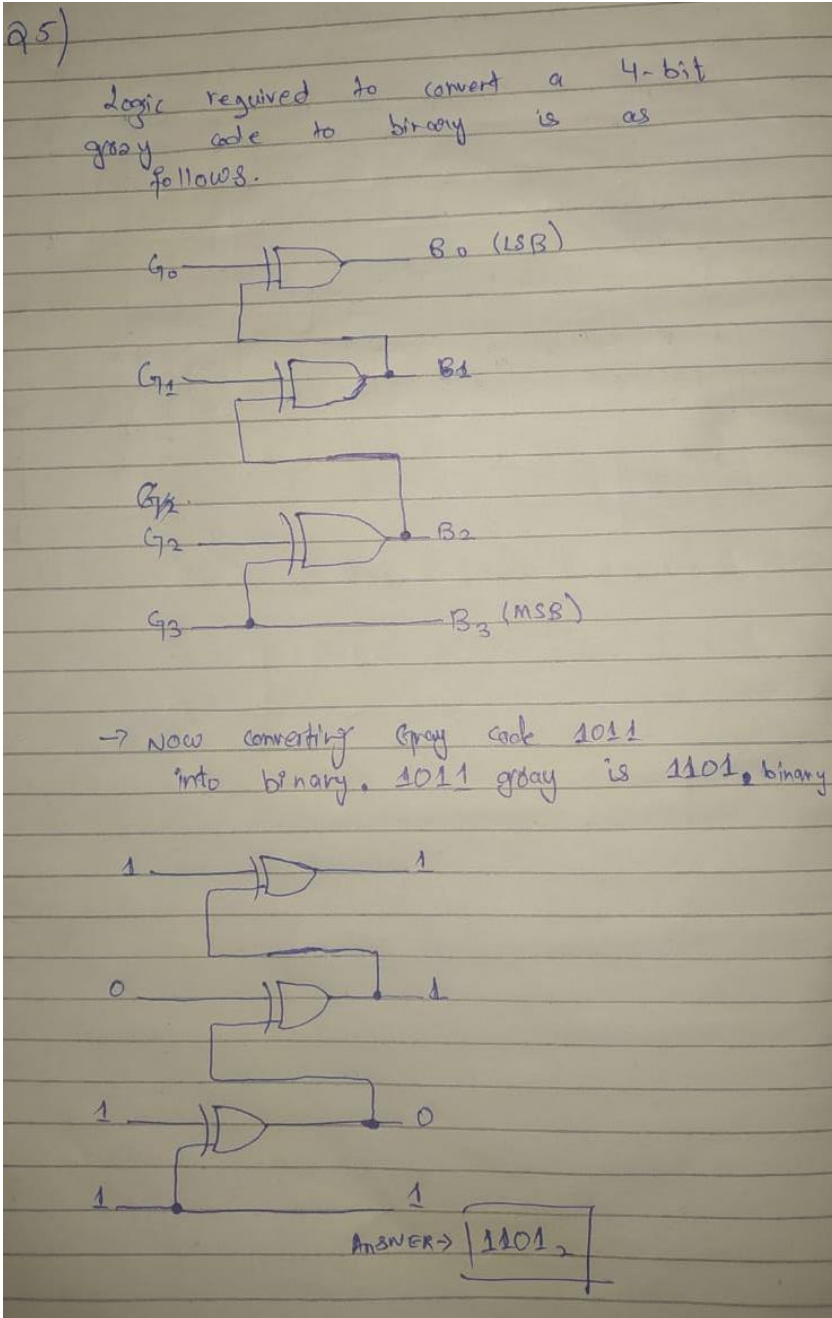 Q5)
Logic required to convert a 4-bit
gray code to binary is as
follows.
G0 B0 (LSB)
G1 B1
G2
G2 B2
G3 B3 (MSB)
→ Now converting Gray code 1011
into binary. 1011 gray is 1101₂ binary
1 1
0 1
1 0
1 1
ANSWER→ 1101₂